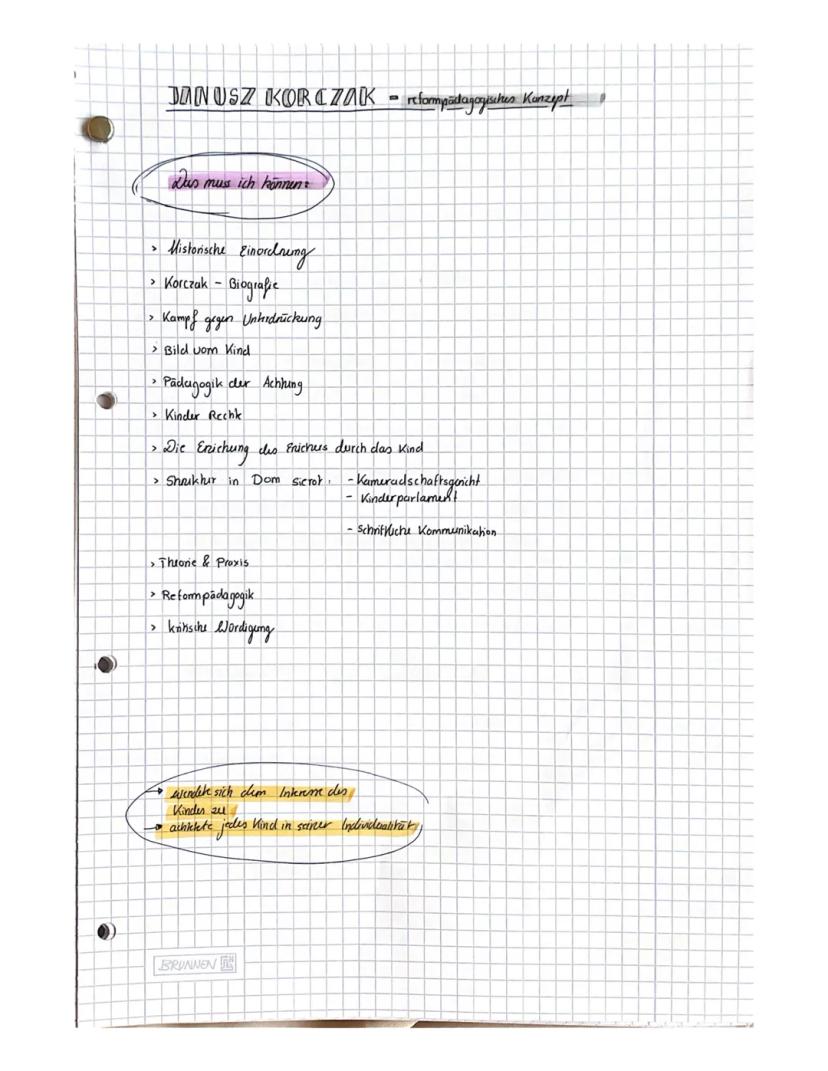 JANUSZ KORCZAK - reformpädagogisches Konzept
Das muss ich können:
> Historische Einordnung
> Korczak - Biografie
> Kampf gegen Unterdrückung
> Bild vom Kind
> Pädagogik der Achtung
> Kinder Rechte
> Die Erziehung des Erziehers durch das Kind
> Struktur in Dom sierot: - Kameradschaftsgericht
- Kinderparlament
- Schriftliche Kommunikation
> Theorie & Praxis
> Reformpädagogik
> kritische Würdigung
→ wendete sich dem Interesse des
Kindes zu
→ achtete jedes Kind in seiner Individualität
BRUNNEN